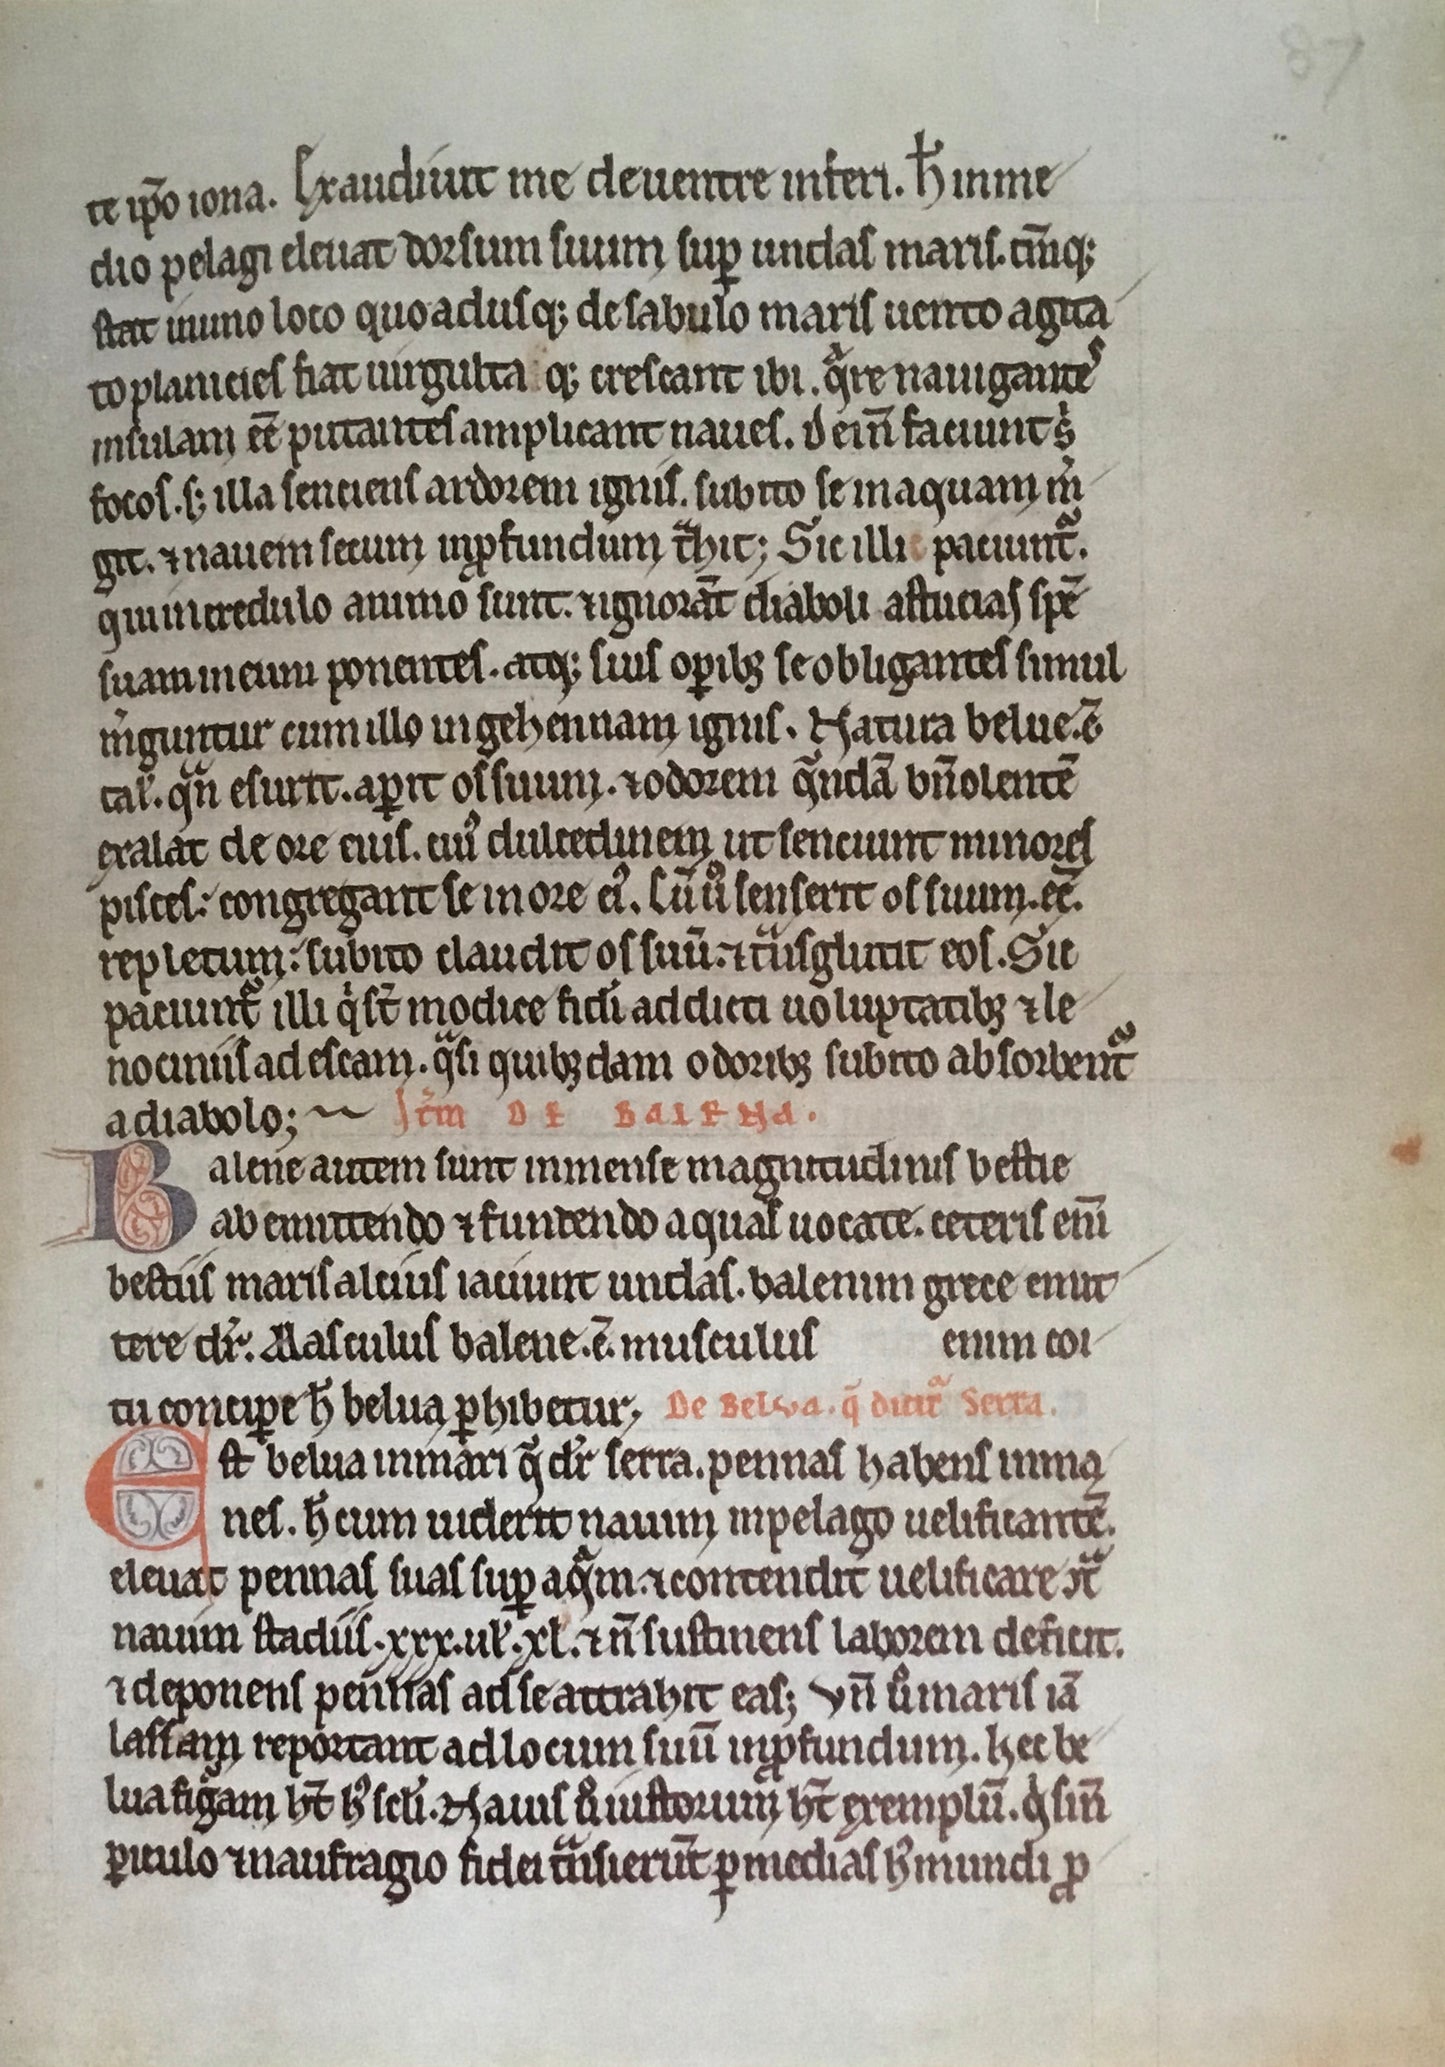 87
te ip̄o iona. Exaudiuit me de uentre inferi. h̄ in me
dio pelagi eleuat dorsum suum sup̱ undas maris. cūq;
stat in uno loco quo adusq; de sabulo maris uento agita
to planicies fiat uirgulta q; crescant ibi. qͣre nauigantes
insulam eē putantes amplicant naues. Dein̄ faciunt sͥ
focos. s; illa senciens ardorem ignis. subito se in aquam m̾
git. ⁊ nauem secum in ꝓfundum tͣhit; Sic illi paciunt᷑.
qui in credulo animo sunt. ⁊ ignorāt diaboli astucias spē
suam in eum ponentes. atq; suis oꝑibꝫ se obligantes simul
m̾guntur cum illo in gehennam ignis. Natura belue .ē
tal̾. qn̄ esurit. aꝑit os suum. ⁊ odorem qͣndā bn̄olentē
exalat de ore eius. cui᷒ dulcedinem ut senciunt minores
pisces: congregant se in ore ei᷒. Cū uͦ senserit os suum .eē.
repletum: subito claudit os suū. ⁊ tͣnsglutit eos. Sic
paciunt᷑ illi qͥ st̄ modice fidei addicti uoluptatibꝫ ⁊ le
nociniis ad escam. qͣsi quibꝫdam odoribꝫ subito absorbent᷑
a diabolo; Itē̄m DE BALENA.
Balene autem sunt inmense magnitudinis bestie
ab emittendo ⁊ funtendo aquas uocate. ceteris eni̅
bestiis maris alcius iaciunt undas. balenim grece emit
tere dr̄. Masculus balene .ē. musculus enim coi
tu conciꝑe h̄ belua ꝑhibetur; De Belua. q̄ dicit᷑ Serra.
Est belua in mari q̄ dr̄ serra. pennas habens inma
nes. h̄ cum uiderit nauim in pelago uelificantē.
eleuat pennas suas sup̱ aqͣm. ⁊ contendit uelificare ꝯtͣ
nauim stadiis .xxx. ul̾ .xl. ⁊ n̄ sustinens laborem deficit.
⁊ deponens pennas ad se attrahit eas; Vn̄ uͦ maris iā
lassam reportant ad locum suū in ꝓfundum. hec be
lua figͥam ht̄ hͥ scl̾i. Nauis uͦ iustorum ht̄ exemplū. qͥ sin̄
ꝑiculo ⁊ naufragio fidei tͣnsierūt ꝑ medias hͥ mundi ꝓ